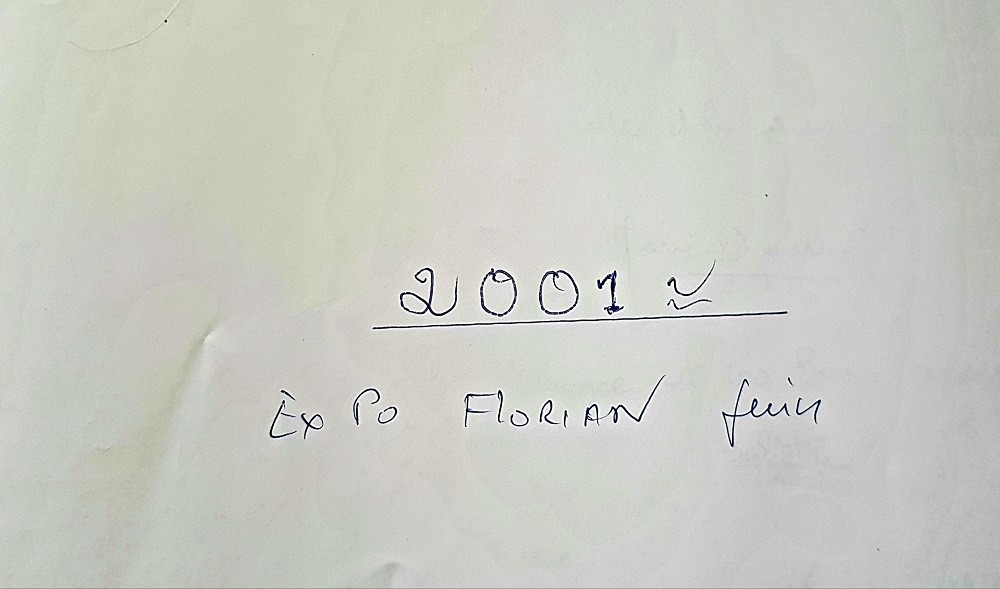 2001 ≈
Expo FLORIAN juin